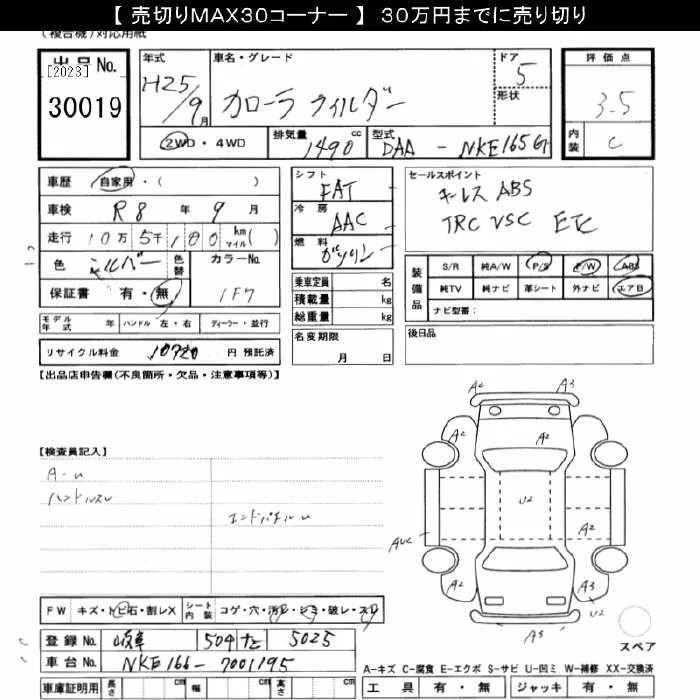 【 売切りMAX30コーナー 】 30万円までに売り切り
(複合機)対応用紙
出品No.
[2023]
30019
年式
H25/9月
車名・グレード
カローラ フィルダー
ドア
5
形状
評価点
3.5
内装
C
2WD・4WD
排気量
1490 cc
型式
DAA - NKE165G
車歴 自家用・( )
車検 R8 年 9 月
走行 10万5千100 km マイル( )
色 シルバー 色替 カラーNo.
1F7
保証書 有・無
モデル年式 年 ハンドル 左・右 ディーラー・並行
リサイクル料金 10720 円 預託済
シフト
FAT
冷房
AAC
燃料
ガソリン
乗車定員 名
積載量 kg
総重量 kg
名変期限
月 日
セールスポイント
キーレス ABS
TRC VSC ETC
装備品
S/R 純A/W P/S P/W ABS
純TV 純ナビ 革シート 外ナビ エアB
ナビ型番:
後日品
【出品店申告欄(不良箇所・欠品・注意事項等)】
【検査員記入】
A-U
ハンドルスレ
エンドパネルU
A2 A3
A2 A2 A2
U2
AUC A2
A2 A3
U2
A3
スペア
FW キズ・トビ石・割レX シート内装 コゲ・穴・汚レ・シミ・破レ・スレ
登録No. 岐阜 504 な 5025
車台No. NKE166-7001195
車庫証明用 長さ cm 幅 cm 高さ cm
A-キズ C-腐食 E-エクボ S-サビ U-凹ミ W-補修 XX-交換済
工具 有・無 ジャッキ 有・無